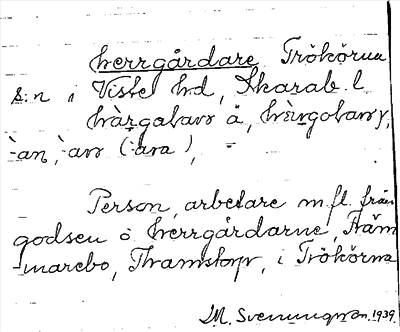 herrgårdare Trökörna
s:n i Viste hd, Skarab. l.
hàrgoḷavs å, hàrgoḷavs,
-an, -avs (-ara), =
Person, arbetare m.fl. från
godsen o herrgårdarne, Främ-
marebo, Thamstorp, i Trökörna
M. Svenungsson. 1939.